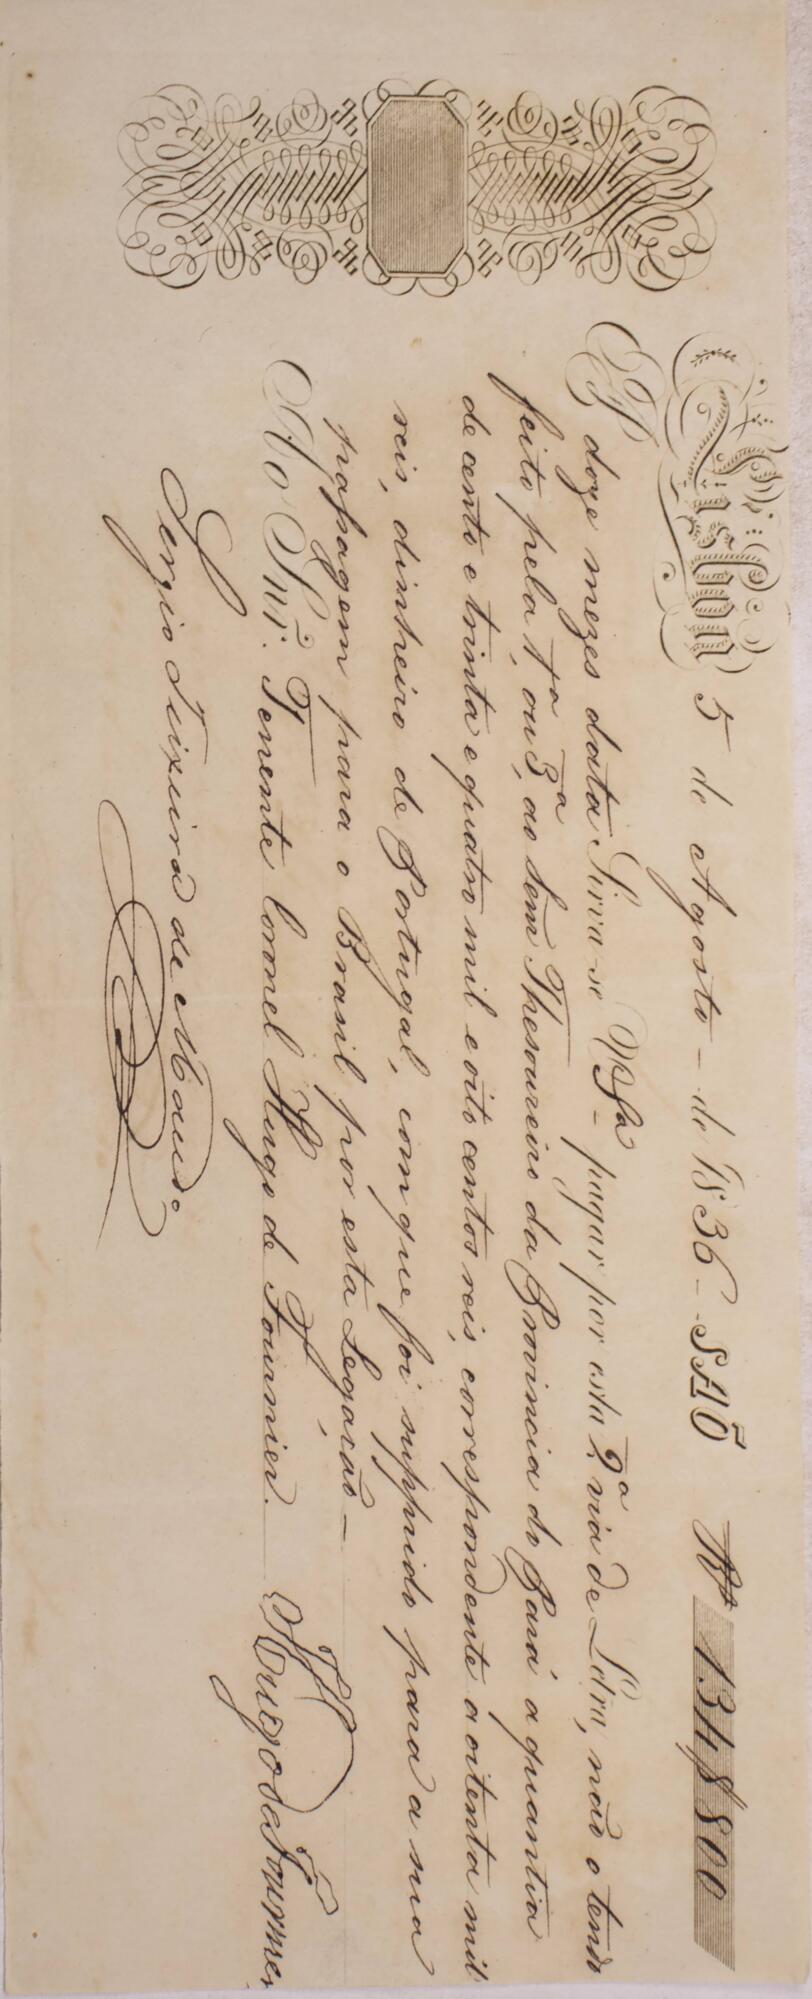 Lisboa 5 de Agosto - de 1836 - SAÕ Rs 134$800
A doze mezes data Sirva-se VSa- pagar por esta 2a via de Letra, não o tendo
feito pela 1a ou 3a, ao Snr Thesoureiro da Provincia do Pará a quantia
de cento e trinta e quatro mil e oito centos reis, correspondente a oitenta mil
reis, dinheiro de Portugal, com que foi supprido para a sua
passagem para o Brasil por esta Legação -
Ao Snr. Tenente Coronel Hugo de Fournier.
Hugo de Fournier
Sergio Teixeira de Macedo